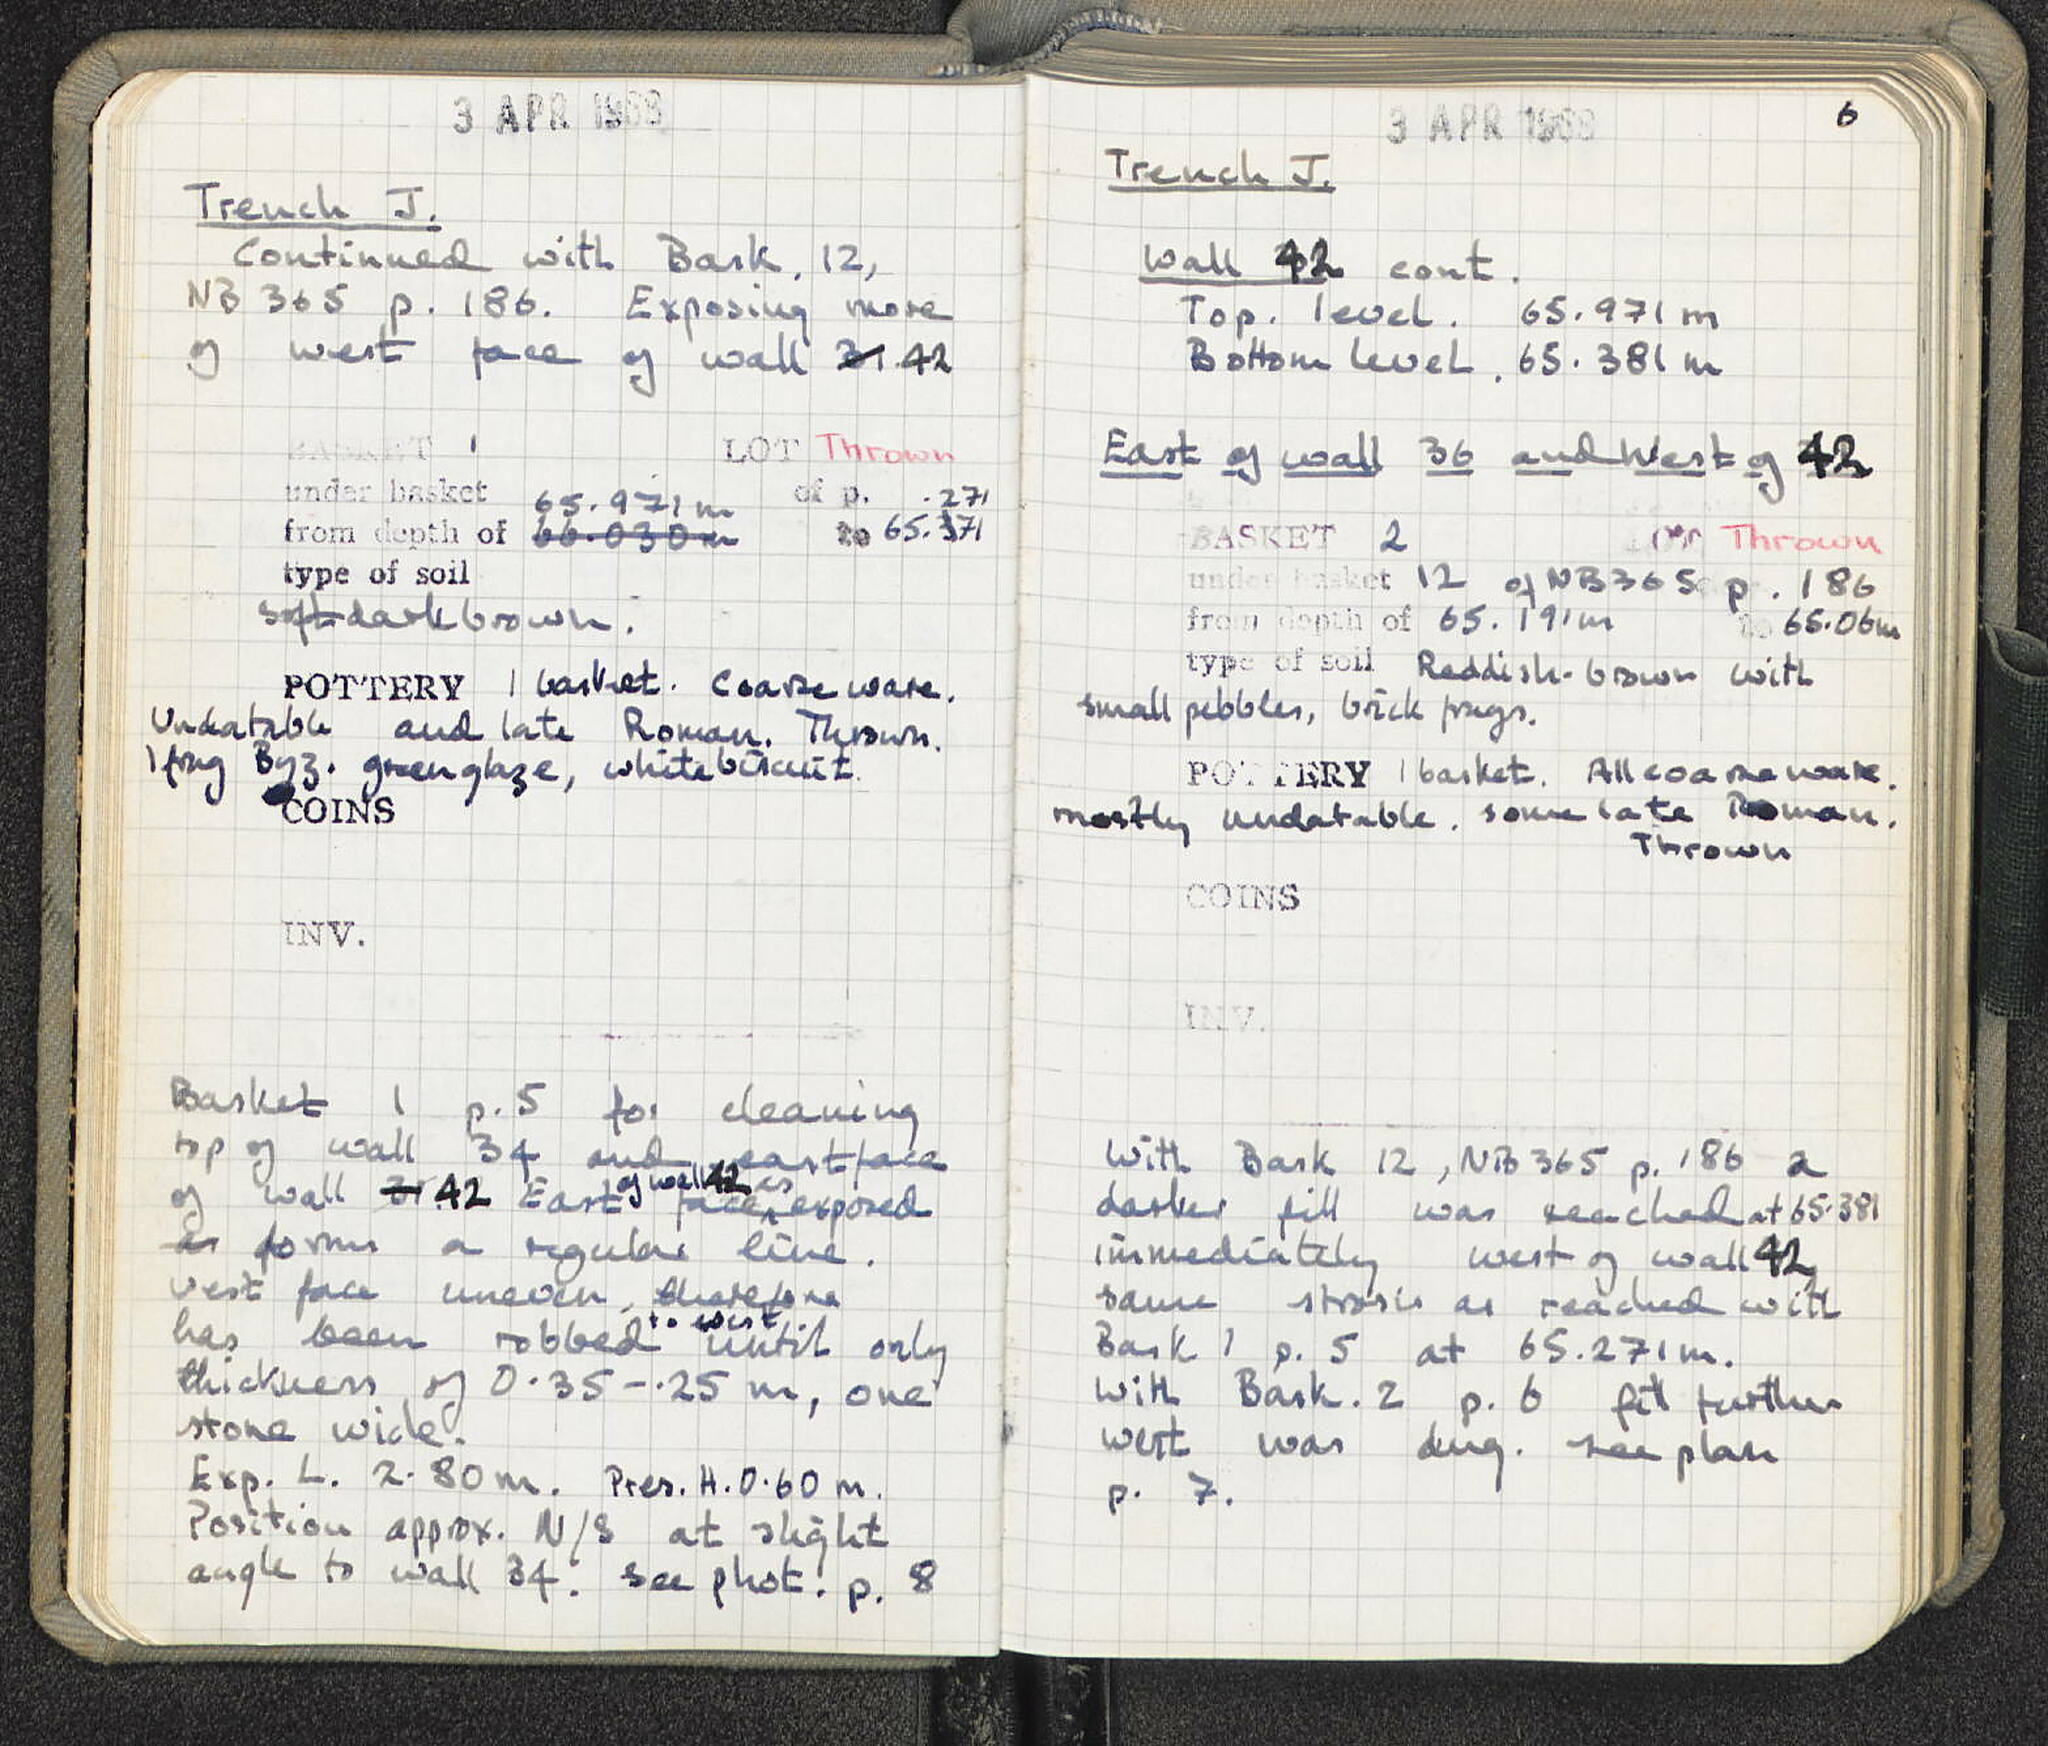 3 APR 1968
Trench J.
Continued with Bask. 12,
NB 365 p. 186. Exposing more
of west face of wall 31.42
BASKET 1 LOT Thrown
under basket of p. .271
65.971m
from depth of 66.030m to 65.371
type of soil
soft dark brown.
POTTERY 1 basket. Coarse ware.
Undatable and late Roman. Thrown.
1 frag Byz. green glaze, white biscuit.
COINS
INV.
Basket 1 p. 5 for cleaning
top of wall 34 and east face
of wall 42 as
of wall 31.42 East face exposed
as forms a regular line.
West face uneven, therefore
to west
has been robbed until only
thickness of 0.35-.25 m, one
stone wide.
Exp. L. 2.80m. Pres. H. 0.60 m.
Position approx. N/S at slight
angle to wall 34. see phot. p. 8
3 APR 1968
6
Trench J.
Wall 42 cont.
Top. level. 65.971m
Bottom level. 65.381m
East of wall 36 and West of 42
BASKET 2 LOT Thrown
under basket 12 of NB 365 p. 186
from depth of 65.191m to 65.06m
type of soil Reddish-brown with
small pebbles, brick frags.
POTTERY 1 basket. All coarse ware.
mostly undatable. some late Roman.
Thrown
COINS
INV.
With Bask 12, NB 365 p. 186 a
darker fill was reached at 65.381
immediately west of wall 42
same strosis as reached with
Bask 1 p. 5 at 65.271m.
With Bask. 2 p. 6 fill further
west was dug. see plan
p. 7.